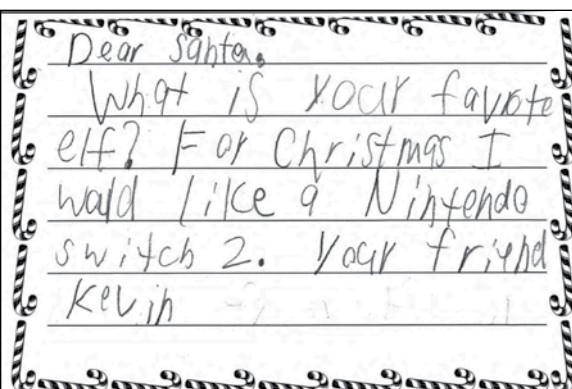 Dear Santa.
What is your favrote
elf? For Christmas I
wald like a Nintendo
switch 2. Your friend
Kevin